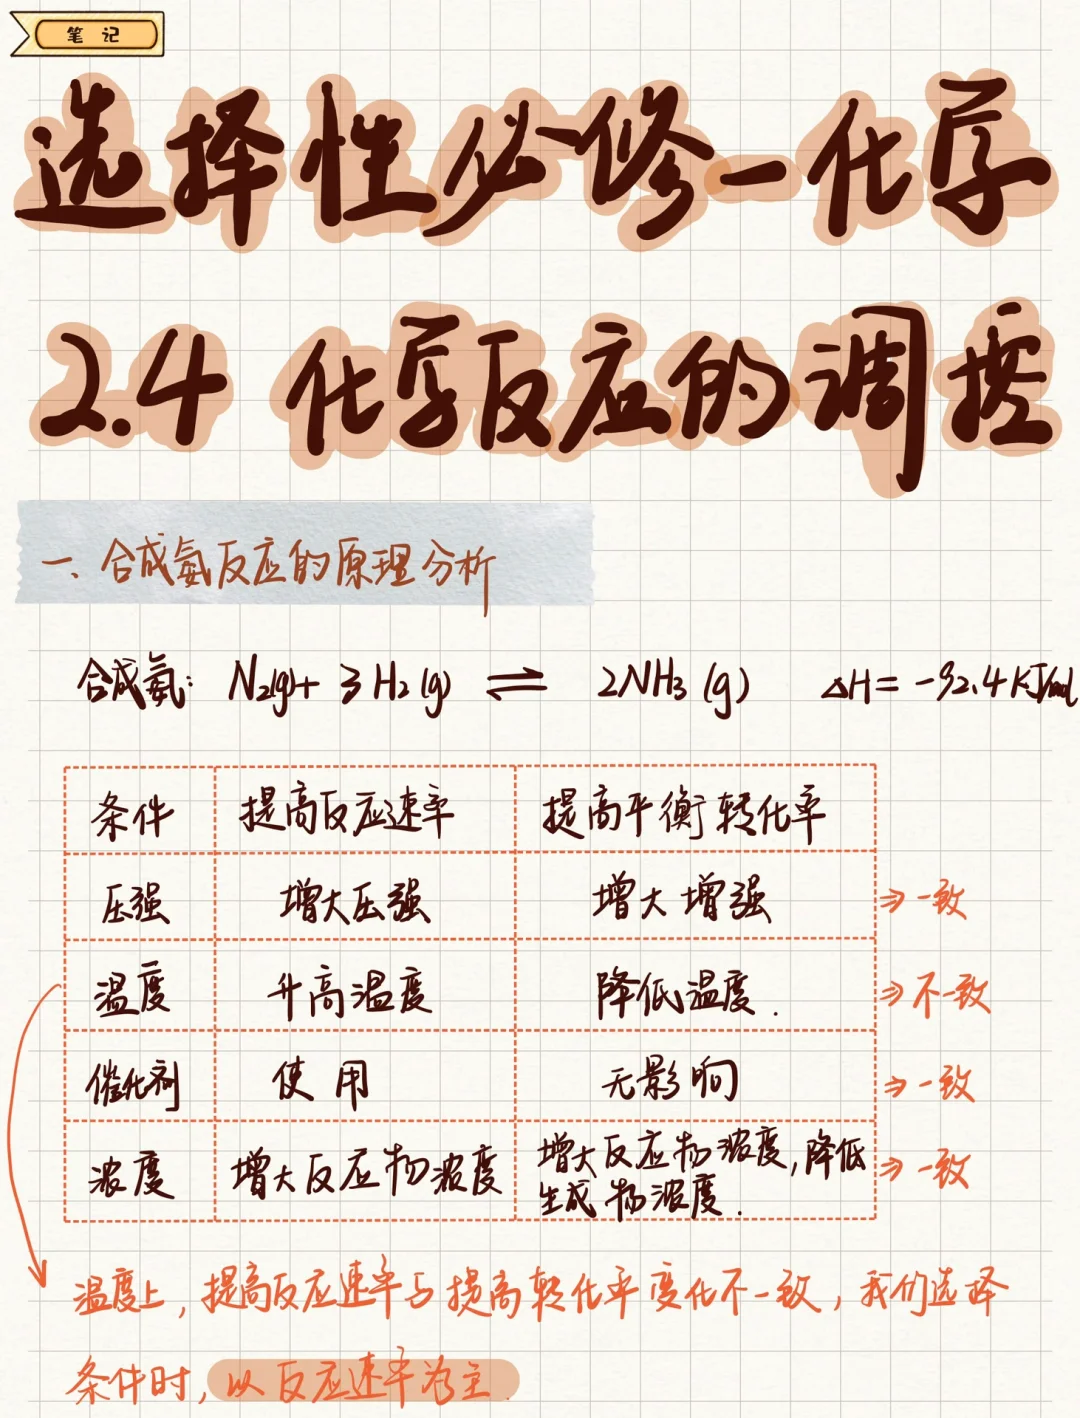 笔 记
选择性必修一化学
2.4 化学反应的调控
一、合成氨反应的原理分析
合成氨: N₂(g)+ 3H₂(g) ⇌ 2NH₃(g) ΔH= -92.4KJ/mol
条件 提高反应速率 提高平衡转化率
压强 增大压强 增大增强 ⇒一致
温度 升高温度 降低温度. ⇒不一致
催化剂 使用 无影响 ⇒一致
浓度 增大反应物浓度 增大反应物浓度,降低 ⇒一致
生成物浓度.
温度上,提高反应速率与提高转化率变化不一致,我们选择
条件时,以反应速率为主.